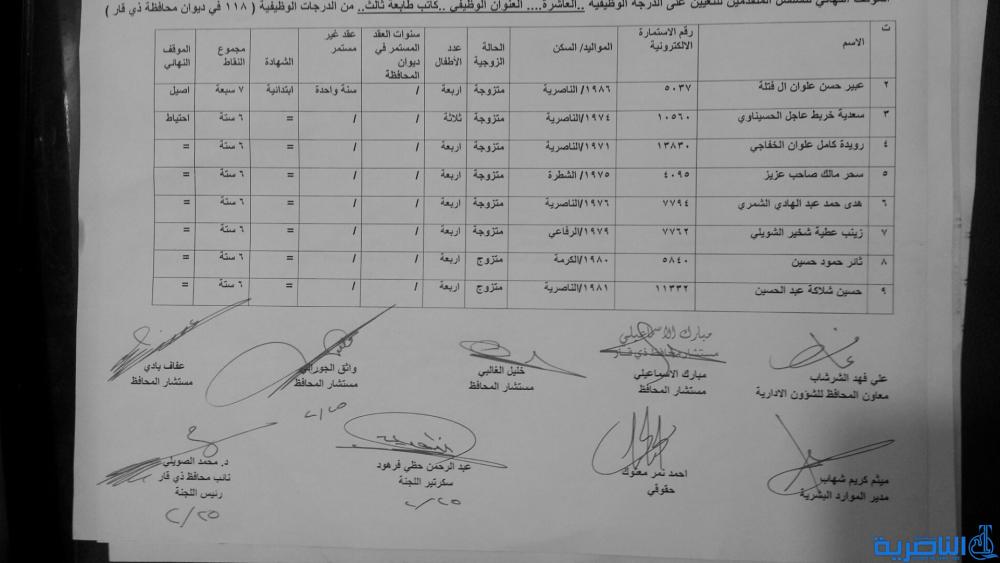 الموقف النهائي للمتقدمين للتعيين على الدرجة الوظيفية ..العاشرة.... العنوان الوظيفي ..كاتب طابعة ثالث.. من الدرجات الوظيفية ( ١١٨ في ديوان محافظة ذي قار )
ت الاسم رقم الاستمارة الالكترونية المواليد/ السكن الحالة الزوجية عدد الأطفال سنوات العقد المستمر في ديوان المحافظة عقد غير مستمر الشهادة مجموع النقاط الموقف النهائي
٢ عبير حسن علوان ال فتلة ٥٠٣٧ ١٩٨٦/ الناصرية متزوجة اربعة / سنة واحدة ابتدائية ٧ سبعة اصيل
٣ سعدية خريبط عاجل الحسيناوي ١٠٥٦٠ ١٩٧٤/الناصرية متزوجة ثلاثة / / = ٦ ستة احتياط
٤ رويدة كامل علوان الخفاجي ١٣٨٣٠ ١٩٧١/الناصرية متزوجة اربعة / / = ٦ ستة =
٥ سحر مالك صاحب عزيز ٤٠٩٥ ١٩٧٥/ الشطرة متزوجة اربعة / / = ٦ ستة =
٦ هدى حمد عبد الهادي الشمري ٧٧٩٤ ١٩٧٦/الناصرية متزوجة اربعة / / = ٦ ستة =
٧ زينب عطية شخير الشويلي ٧٧٦٢ ١٩٧٩/الرفاعي متزوجة اربعة / / = ٦ ستة =
٨ ثائر حمود حسين ٥٨٤٠ ١٩٨٠/الكرمة متزوج اربعة / / = ٦ ستة =
٩ حسين شلاكة عبد الحسين ١١٣٣٢ ١٩٨١/الناصرية متزوج اربعة / / = ٦ ستة =
مبارك الاسماعيلي
مستشار محافظ ذي قار
علي فهد الشرشاب
معاون المحافظ للشؤون الادارية
مبارك الاسماعيلي
مستشار المحافظ
خليل الغالبي
مستشار المحافظ
واثق الجوراني
مستشار المحافظ
٢/٢٥
عفاف بادي
مستشار المحافظ
ميثم كريم شهاب
مدير الموارد البشرية
احمد نمر معتوك
حقوقي
عبد الرحمن حظي فرهود
سكرتير اللجنة
٢/٢٥
د. محمد الصويلي
نائب محافظ ذي قار
رئيس اللجنة
٢/٢٥
الناصرية